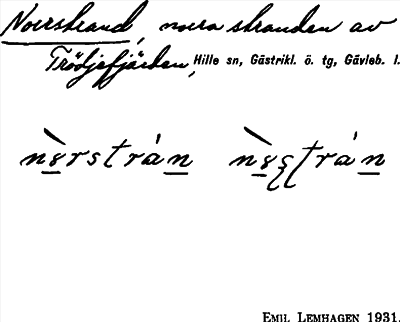 Norrstrand, norra stranden av
Trödjefjärden, Hille sn, Gästrikl. ö. tg, Gävleb. l.
Emil Lemhagen 1931.